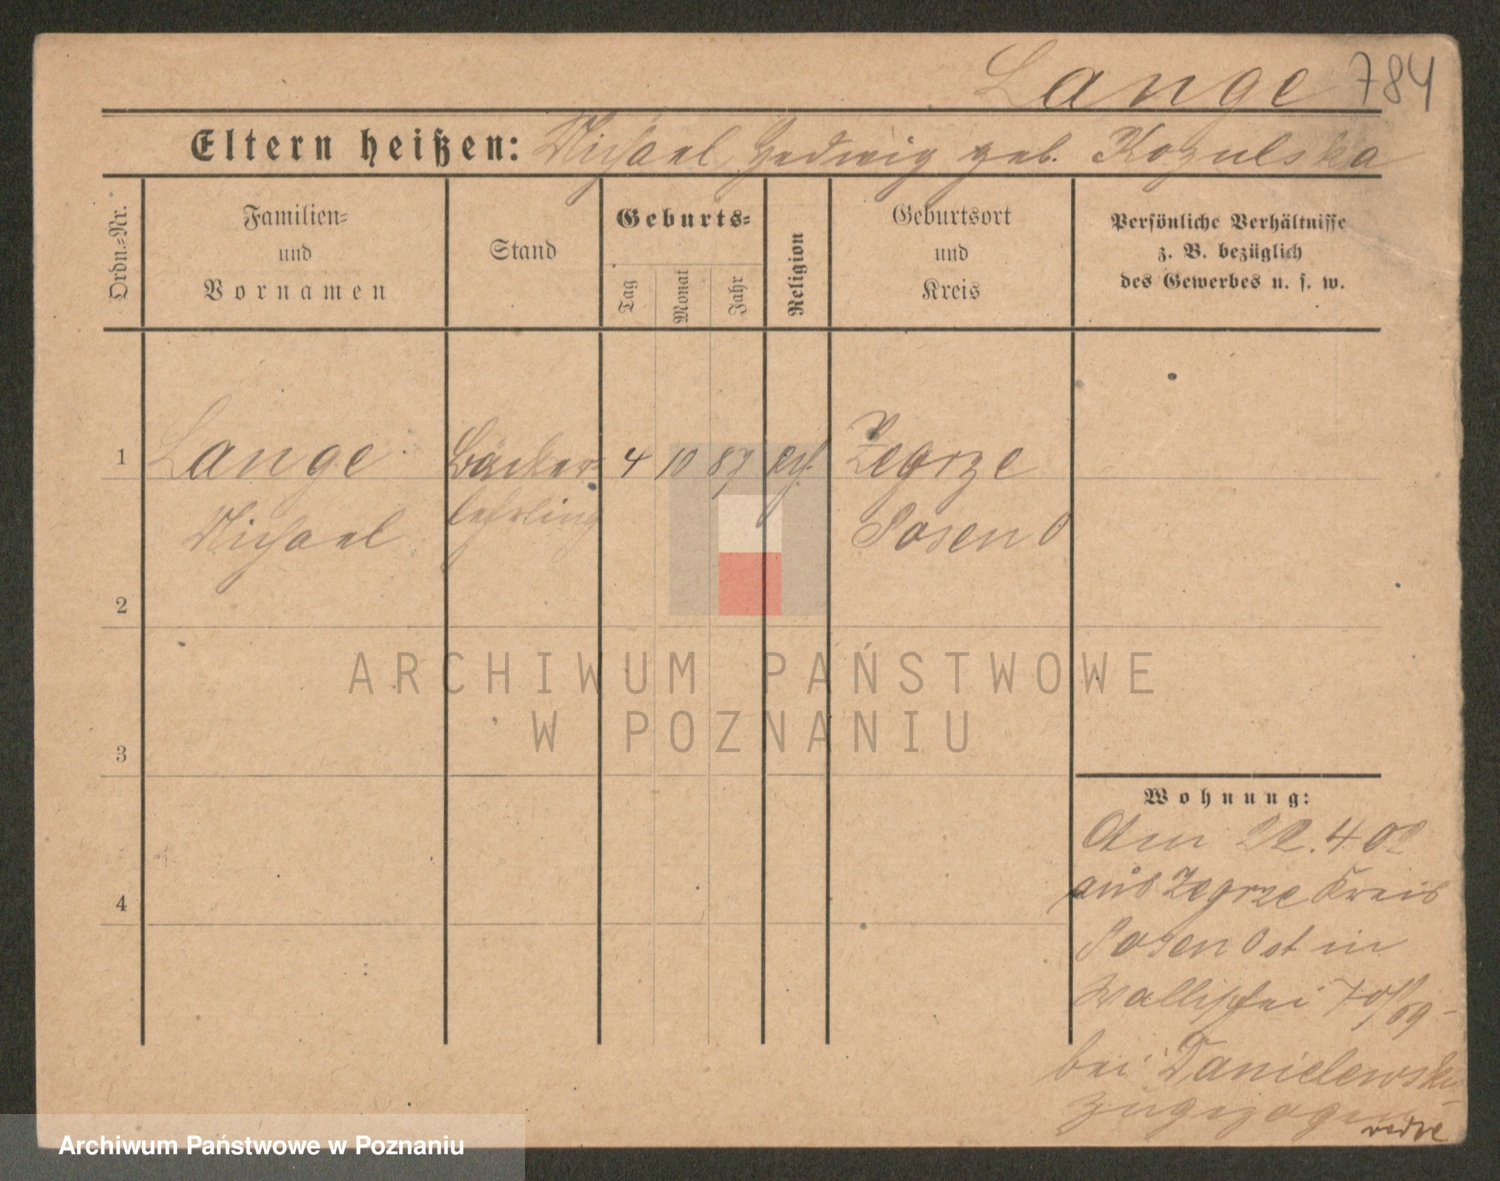 Lange 784
Eltern heißen: Michael, Hedwig geb. Kozulska
Ordn.-Nr.
Familien-
und
Vornamen
Stand
Geburts-
Tag
Monat
Jahr
Religion
Geburtsort
und
Kreis
Persönliche Verhältnisse
z. B. bezüglich
des Gewerbes u. s. w.
1 Lange Bäcker- 4 10 87 Zegrze
Michael lehrling Posen O
2
3
4
ARCHIWUM PAŃSTWOWE
W POZNANIU
Wohnung:
Am 22.4 02
aus Zegrze Kreis
Posen Ost in
Wallischei
bei Danielewski
zugezogen
Archiwum Państwowe w Poznaniu